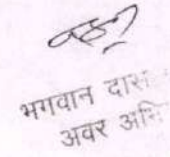 भगवान दास
अवर अभि